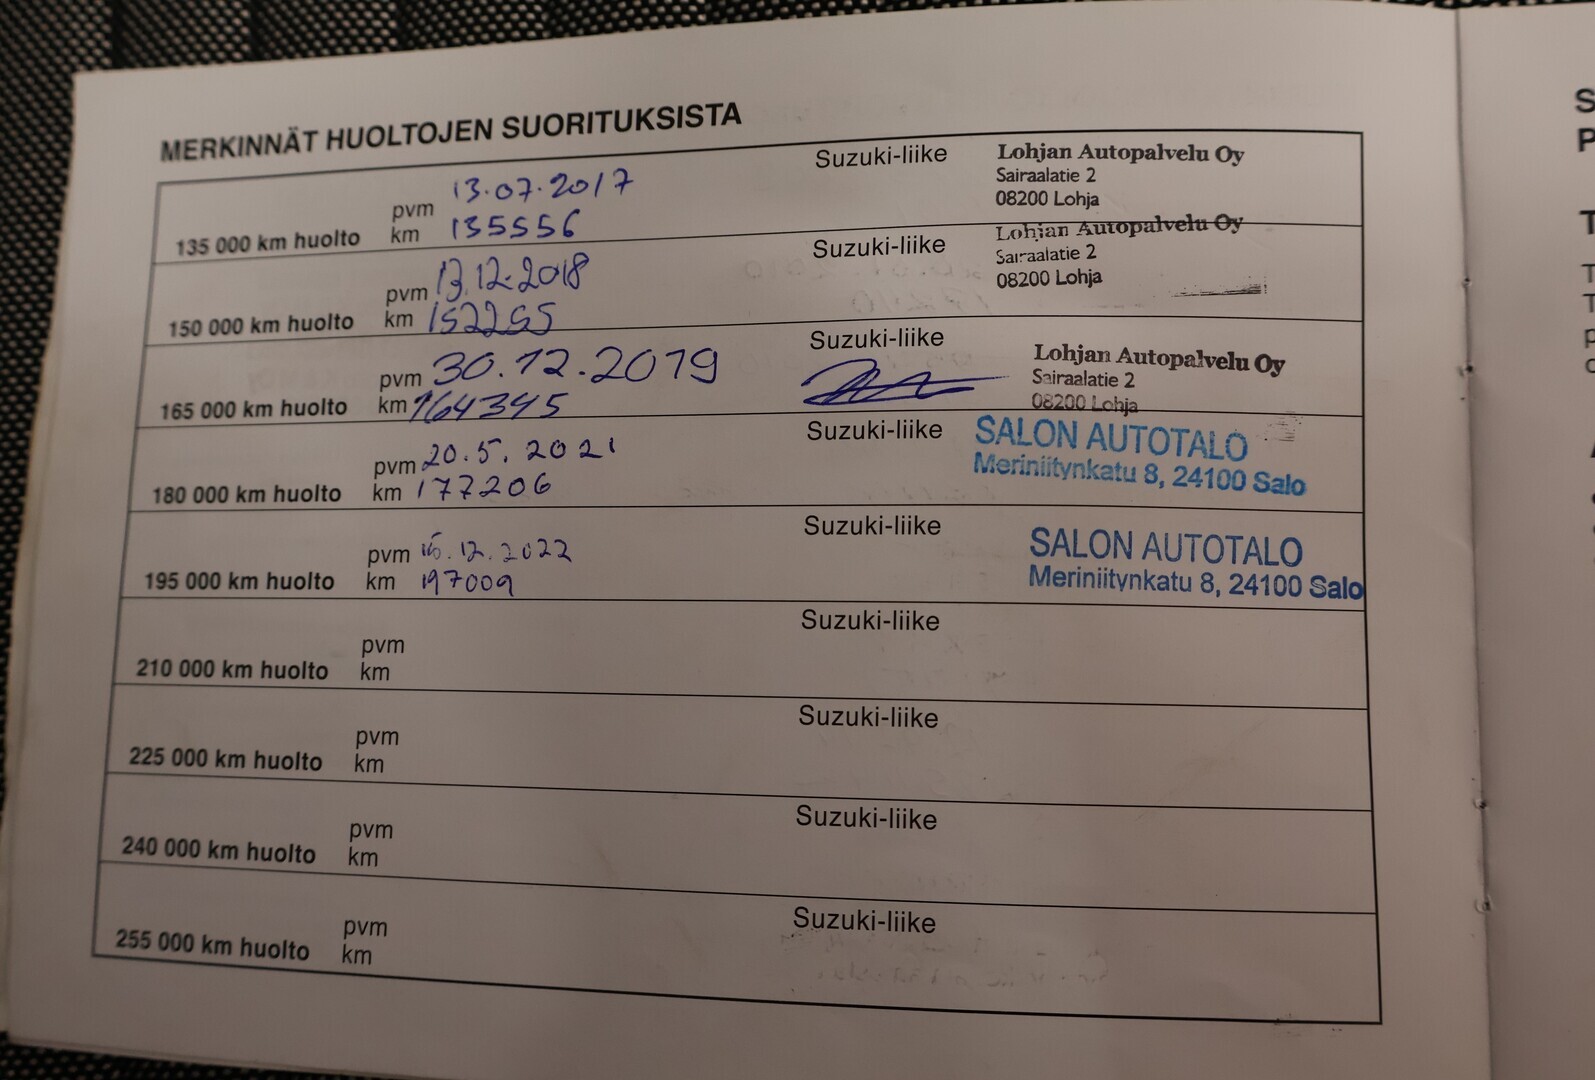 MERKINNÄT HUOLTOJEN SUORITUKSISTA
135 000 km huolto pvm 13.07.2017 km 135556 Suzuki-liike
Lohjan Autopalvelu Oy
Sairaalatie 2
08200 Lohja
150 000 km huolto pvm 13.12.2018 km 152255 Suzuki-liike
Lohjan Autopalvelu Oy
Sairaalatie 2
08200 Lohja
165 000 km huolto pvm 30.12.2019 km 164345 Suzuki-liike
Lohjan Autopalvelu Oy
Sairaalatie 2
08200 Lohja
180 000 km huolto pvm 20.5.2021 km 177206 Suzuki-liike
SALON AUTOTALO
Meriniitynkatu 8, 24100 Salo
195 000 km huolto pvm 15.12.2022 km 197009 Suzuki-liike
SALON AUTOTALO
Meriniitynkatu 8, 24100 Salo
210 000 km huolto pvm km Suzuki-liike
225 000 km huolto pvm km Suzuki-liike
240 000 km huolto pvm km Suzuki-liike
255 000 km huolto pvm km Suzuki-liike